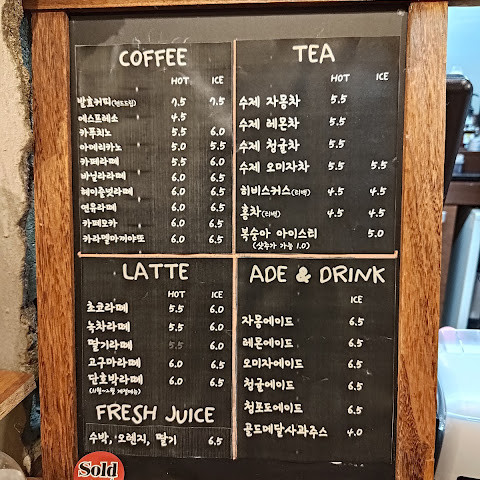 COFFEE
HOT ICE
발효커피(핸드드립) 7.5 7.5
에스프레소 4.5
카푸치노 5.5 6.0
아메리카노 5.0 5.5
카페라떼 5.5 6.0
바닐라라떼 6.0 6.5
헤이즐넛라떼 6.0 6.5
연유라떼 6.0 6.5
카페모카 6.0 6.5
카라멜마끼야또 6.0 6.5
TEA
HOT ICE
수제 자몽차 5.5
수제 레몬차 5.5
수제 청귤차 5.5
수제 오미자차 5.5 5.5
히비스커스(티백) 4.5 4.5
홍차(티백) 4.5 4.5
복숭아 아이스티 5.0
(샷추가 가능 1.0)
LATTE
HOT ICE
초코라떼 5.5 6.0
녹차라떼 5.5 6.0
딸기라떼 5.5 6.0
고구마라떼 6.0 6.5
단호박라떼 6.0 6.5
FRESH JUICE
수박, 오렌지, 딸기 6.5
ADE & DRINK
ICE
자몽에이드 6.5
레몬에이드 6.5
오미자에이드 6.5
청귤에이드 6.5
청포도에이드 6.5
골드메달사과주스 4.0
Sold